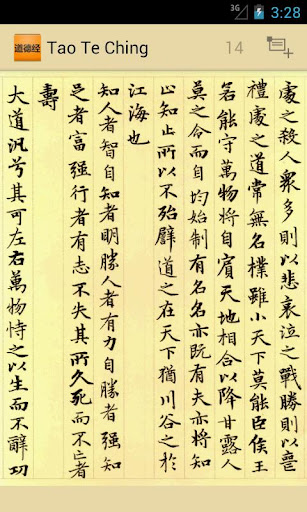 3G 3:28
道德经 Tao Te Ching 14
處之殺人眾多則以悲哀泣之戰勝則以喪
禮處之道常無名樸雖小天下莫能臣侯王
若能守萬物將自賓天地相合以降甘露人
莫之令而自均始制有名名亦既有夫亦將知
止知止所以不殆譬道之在天下猶川谷之於
江海也
知人者智自知者明勝人者有力自勝者強知
足者富強行者有志不失其所久死而不亡者
壽
大道汎兮其可左右萬物恃之以生而不辭功